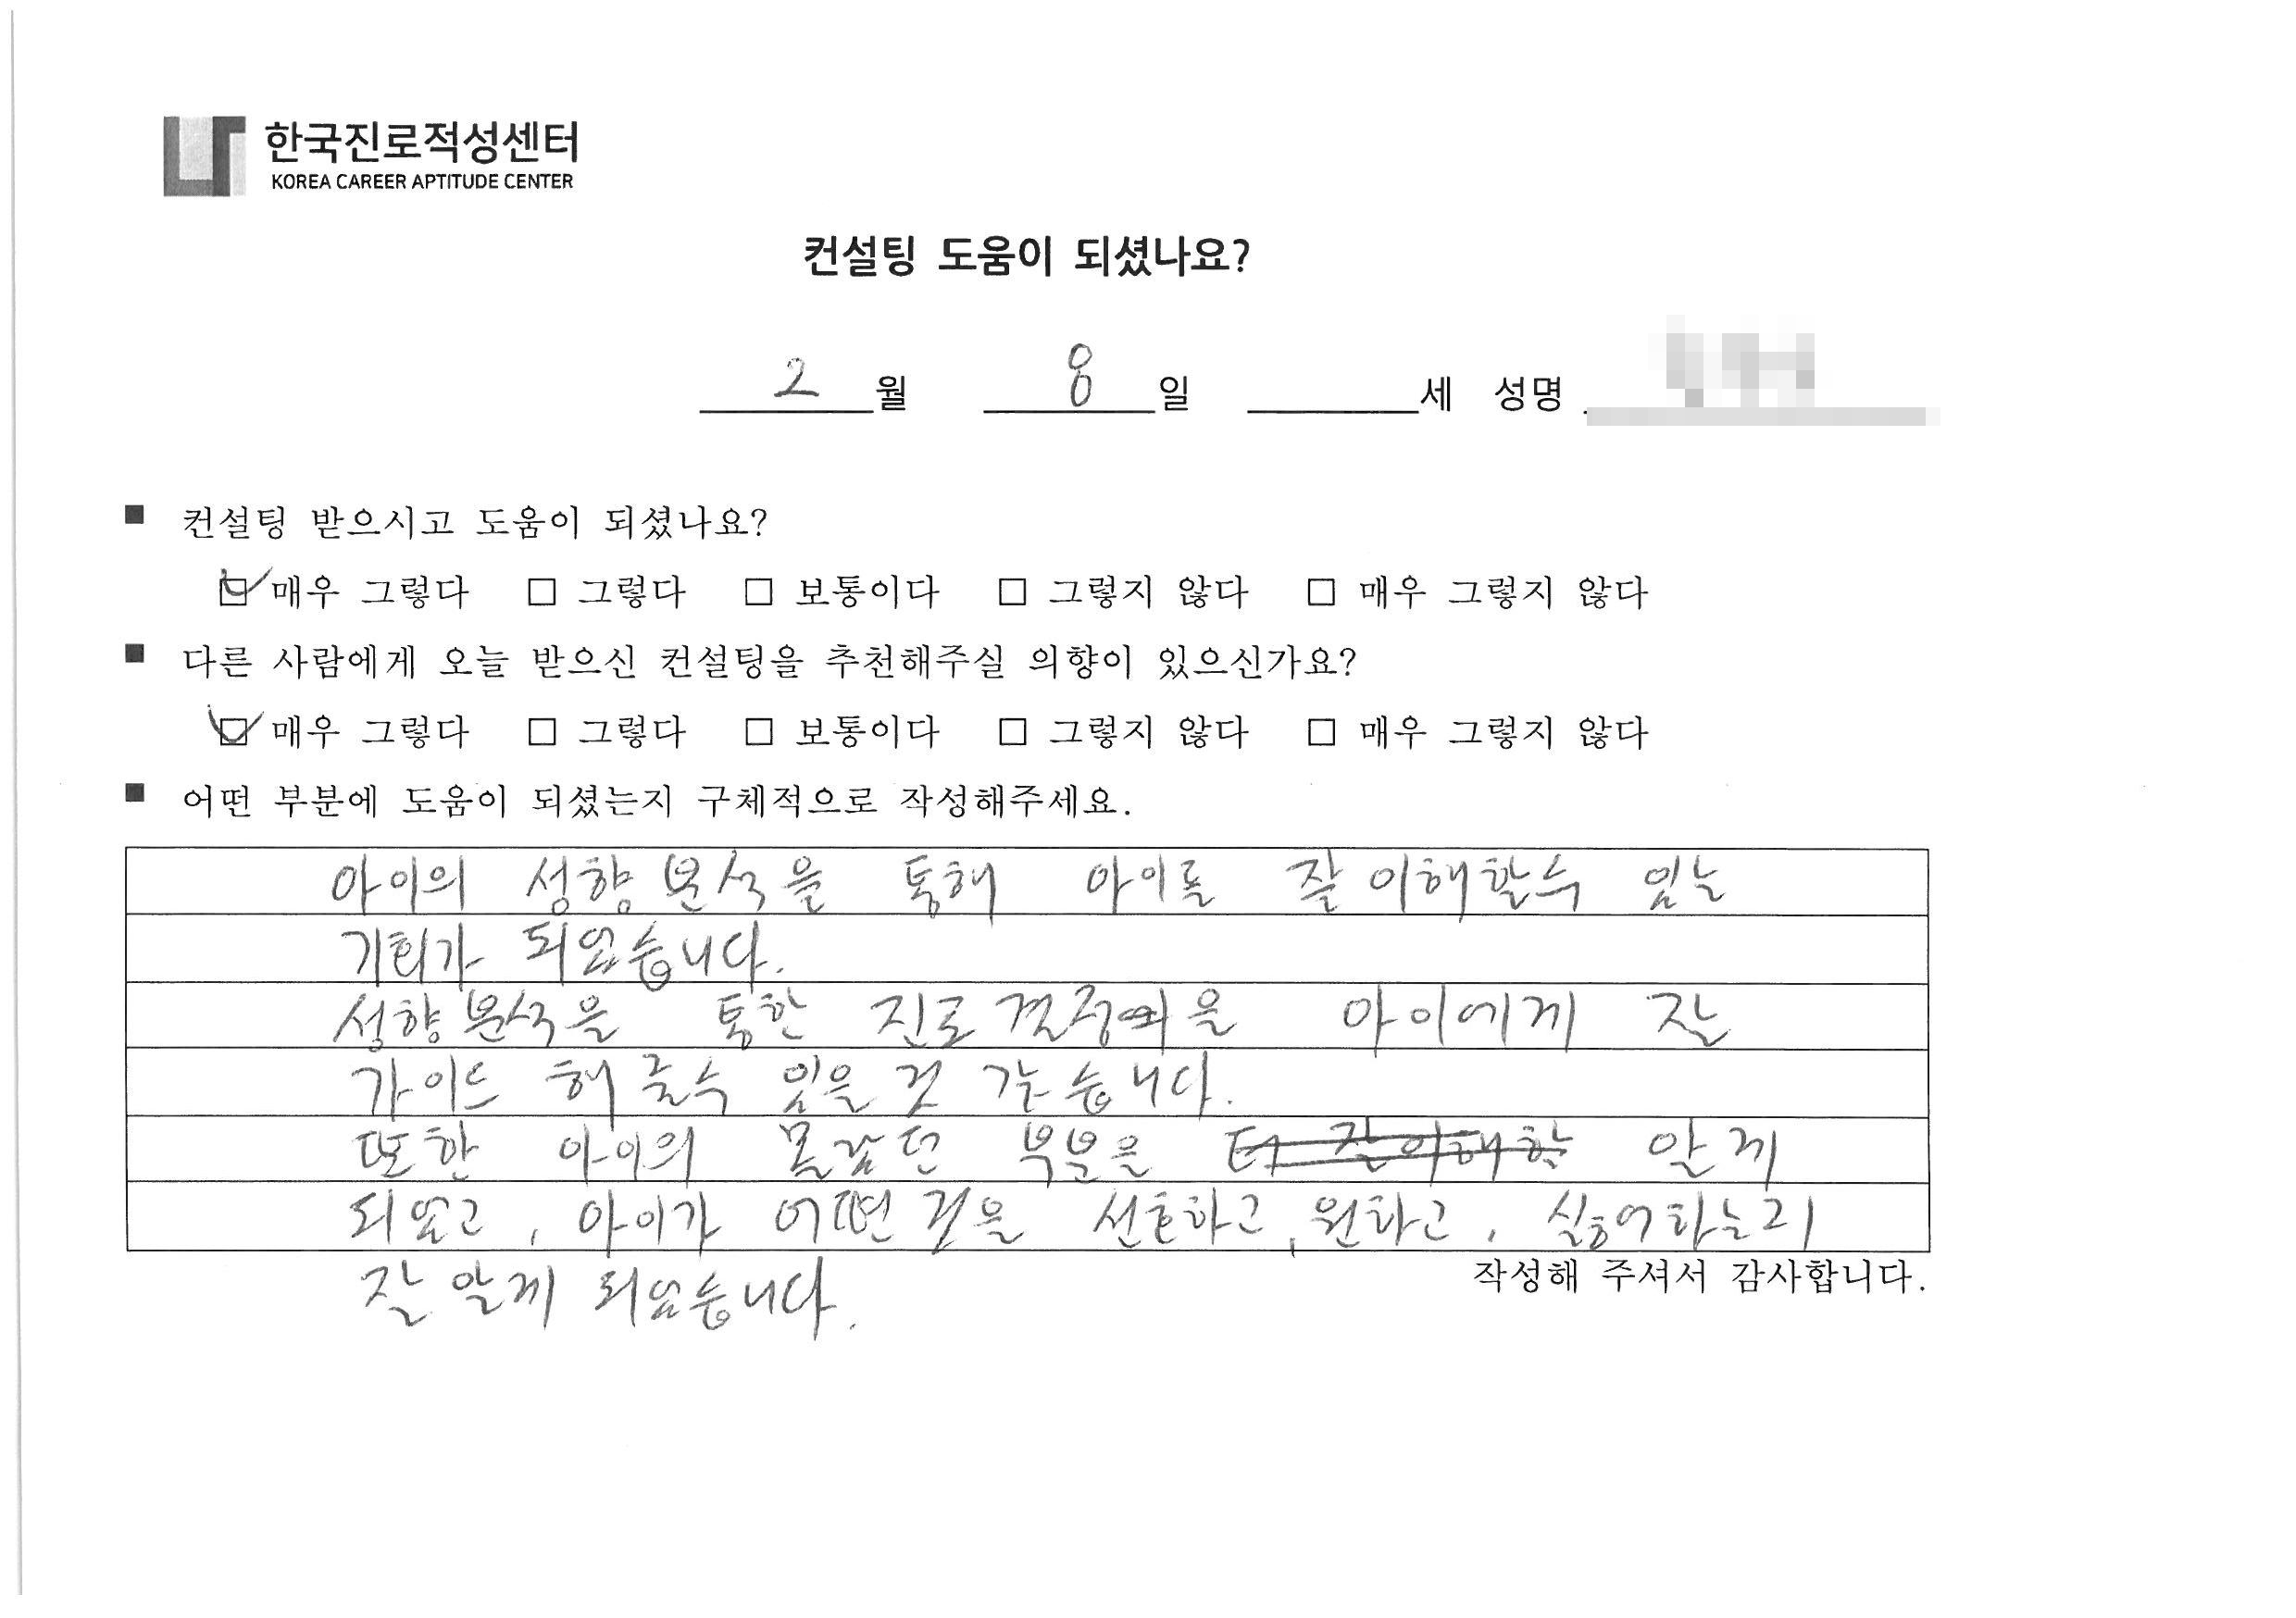 한국진로적성센터
KOREA CAREER APTITUDE CENTER
컨설팅 도움이 되셨나요?
2 월 8 일 세 성명
■ 컨설팅 받으시고 도움이 되셨나요?
☑ 매우 그렇다 □ 그렇다 □ 보통이다 □ 그렇지 않다 □ 매우 그렇지 않다
■ 다른 사람에게 오늘 받으신 컨설팅을 추천해주실 의향이 있으신가요?
☑ 매우 그렇다 □ 그렇다 □ 보통이다 □ 그렇지 않다 □ 매우 그렇지 않다
■ 어떤 부분에 도움이 되셨는지 구체적으로 작성해주세요.
아이의 성향분석을 통해 아이를 잘 이해할수 있는
기회가 되었습니다.
성향분석을 통한 진로 결정을 아이에게 잘
가이드 해 줄수 있을 것 같습니다.
또한 아이의 몰랐던 부분을 더 잘 이해할 알게
되었고, 아이가 어떤 것을 선호하고, 원하고, 싫어하는지
작성해 주셔서 감사합니다.
잘 알게 되었습니다.